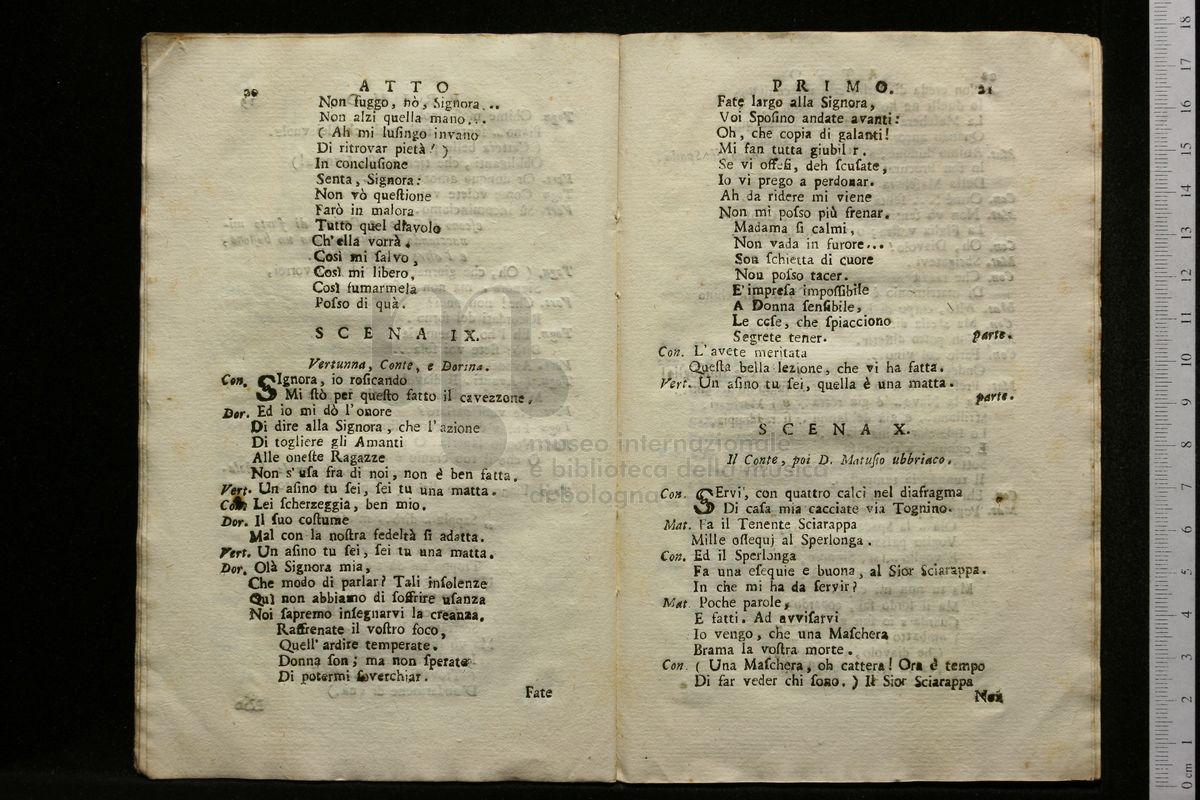 20
ATTO
Non fuggo, nò, Signora...
Non alzi quella mano...
( Ah mi luſingo invano
Di ritrovar pietà! )
In concluſione
Senta, Signora:
Non vò queſtione
Farò in malora
Tutto quel diavolo
Ch'ella vorrà.
Così mi ſalvo,
Così mi libero,
Così fumarmela
Poſſo di quà.
SCENA IX.
Vertunna, Conte, e Dorina.
Con. SIgnora, io roſicando
Mi ſtò per queſto fatto il cavezzone,
Dor. Ed io mi dò l'onore
Di dire alla Signora, che l'azione
Di togliere gli Amanti
Alle oneſte Ragazze
Non s'uſa fra di noi, non è ben fatta.
Vert. Un aſino tu ſei, ſei tu una matta.
Con. Lei ſcherzeggia, ben mio.
Dor. Il ſuo coſtume
Mal con la noſtra fedeltà ſi adatta.
Vert. Un aſino tu ſei, ſei tu una matta.
Dor. Olà Signora mia,
Che modo di parlar? Tali inſolenze
Quì non abbiamo di ſoffrire uſanza
Noi ſapremo inſegnarvi la creanza.
Raffrenate il voſtro foco,
Quell' ardire temperate.
Donna ſon; ma non ſperate
Di potermi ſoverchiar.
Fate
PRIMO.
21
Fate largo alla Signora,
Voi Spoſino andate avanti:
Oh, che copia di galanti!
Mi fan tutta giubil r.
Se vi offeſi, deh ſcuſate,
Io vi prego a perdonar.
Ah da ridere mi viene
Non mi poſſo più frenar.
Madama ſi calmi,
Non vada in furore...
Son ſchietta di cuore
Non poſſo tacer.
E' impreſa impoſſibile
A Donna ſenſibile,
Le coſe, che ſpiacciono
Segrete tener. parte.
Con. L'avete meritata
Queſta bella lezione, che vi ha fatta.
Vert. Un aſino tu ſei, quella è una matta.
parte.
SCENA X.
Il Conte, poi D. Matuſio ubbriaco.
Con. SErvi, con quattro calci nel diafragma
Di caſa mia cacciate via Tognino.
Mat. Fa il Tenente Sciarappa
Mille oſſequj al Sperlonga.
Con. Ed il Sperlonga
Fa una eſequie e buona, al Sior Sciarappa.
In che mi ha da ſervir?
Mat. Poche parole,
E fatti. Ad avviſarvi
Io vengo, che una Maſchera
Brama la voſtra morte.
Con. ( Una Maſchera, oh cattera! Ora è tempo
Di far veder chi ſono. ) Il Sior Sciarappa
Non
museo internazionale
e biblioteca della musica
di bologna
0 cm 1 2 3 4 5 6 7 8 9 10 11 12 13 14 15 16 17 18